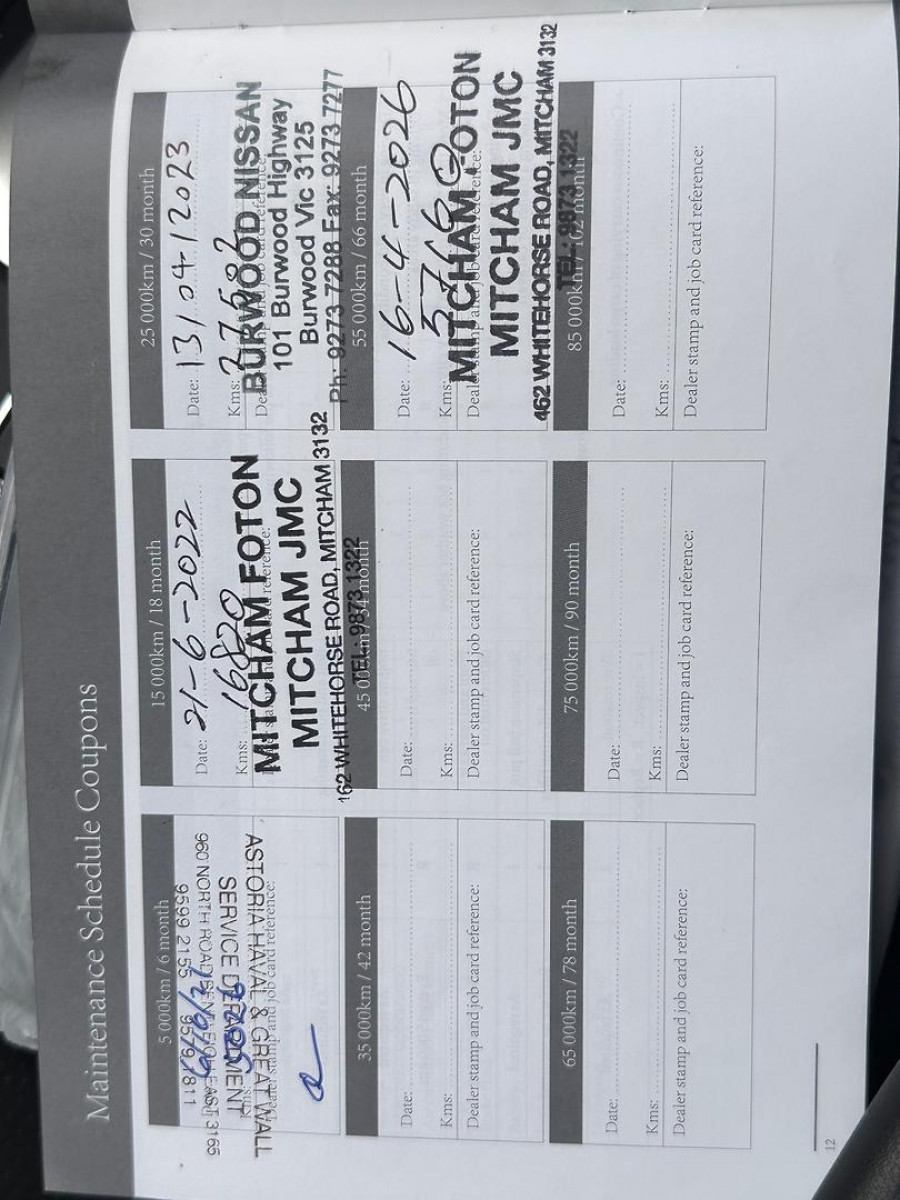 Maintenance Schedule Coupons
5 000km / 6 month
960 NORTH ROAD BENTLEIGH EAST 3165
SERVICE DEPARTMENT
ASTORIA HAVAL & GREAT WALL
Dealer stamp and job card reference:
15 000km / 18 month
Date: 21-6-2022
Kms: 16820
MITCHAM FOTON
MITCHAM JMC
462 WHITEHORSE ROAD, MITCHAM 3132
TEL: 9873 1322
25 000km / 30 month
Date: 13/04/2023
Kms:
BURWOOD NISSAN
101 Burwood Highway
Burwood Vic 3125
Ph: 9273 7288 Fax: 9273 7277
35 000km / 42 month
Date:
Kms:
Dealer stamp and job card reference:
45 000km / 54 month
Date:
Kms:
Dealer stamp and job card reference:
55 000km / 66 month
Date: 16-4-2026
Kms:
MITCHAM FOTON
MITCHAM JMC
462 WHITEHORSE ROAD, MITCHAM 3132
TEL: 9873 1322
65 000km / 78 month
Date:
Kms:
Dealer stamp and job card reference:
75 000km / 90 month
Date:
Kms:
Dealer stamp and job card reference:
85 000km / 102 month
Date:
Kms:
Dealer stamp and job card reference:
12